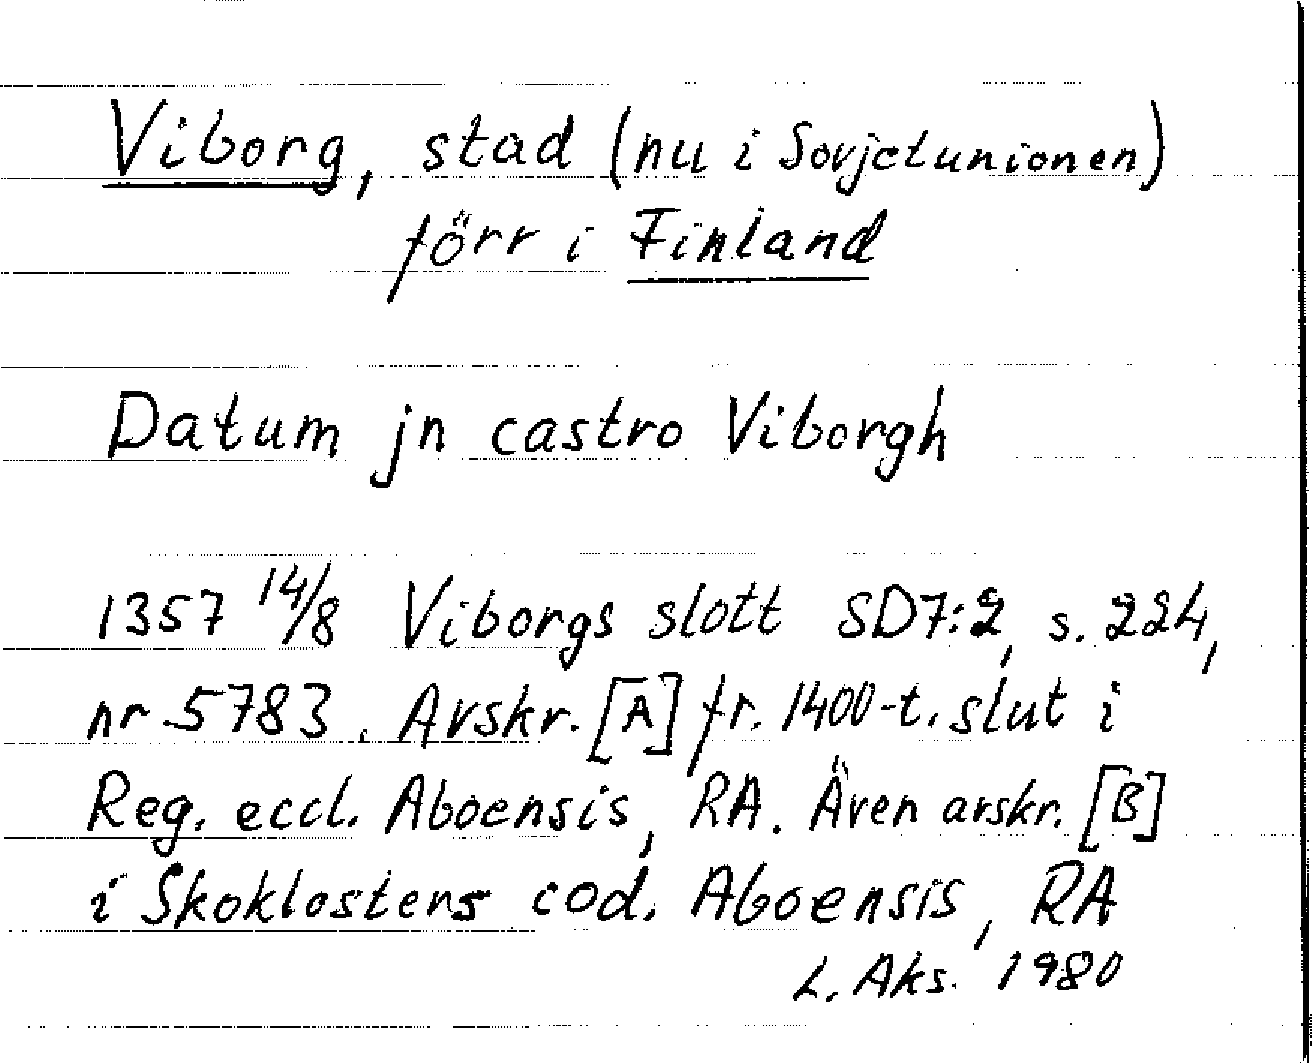 Viborg, stad (nu i Sovjetunionen)
förr i Finland
Datum jn castro Viborgh
1357 14/8 Viborgs slott SD7:2, s. 224,
nr 5783. Avskr. [A] fr. 1400-t. slut i
Reg. eccl. Aboensis, RA. Även avskr. [B]
i Skoklosters cod. Aboensis, RA
L. Aks. 1980